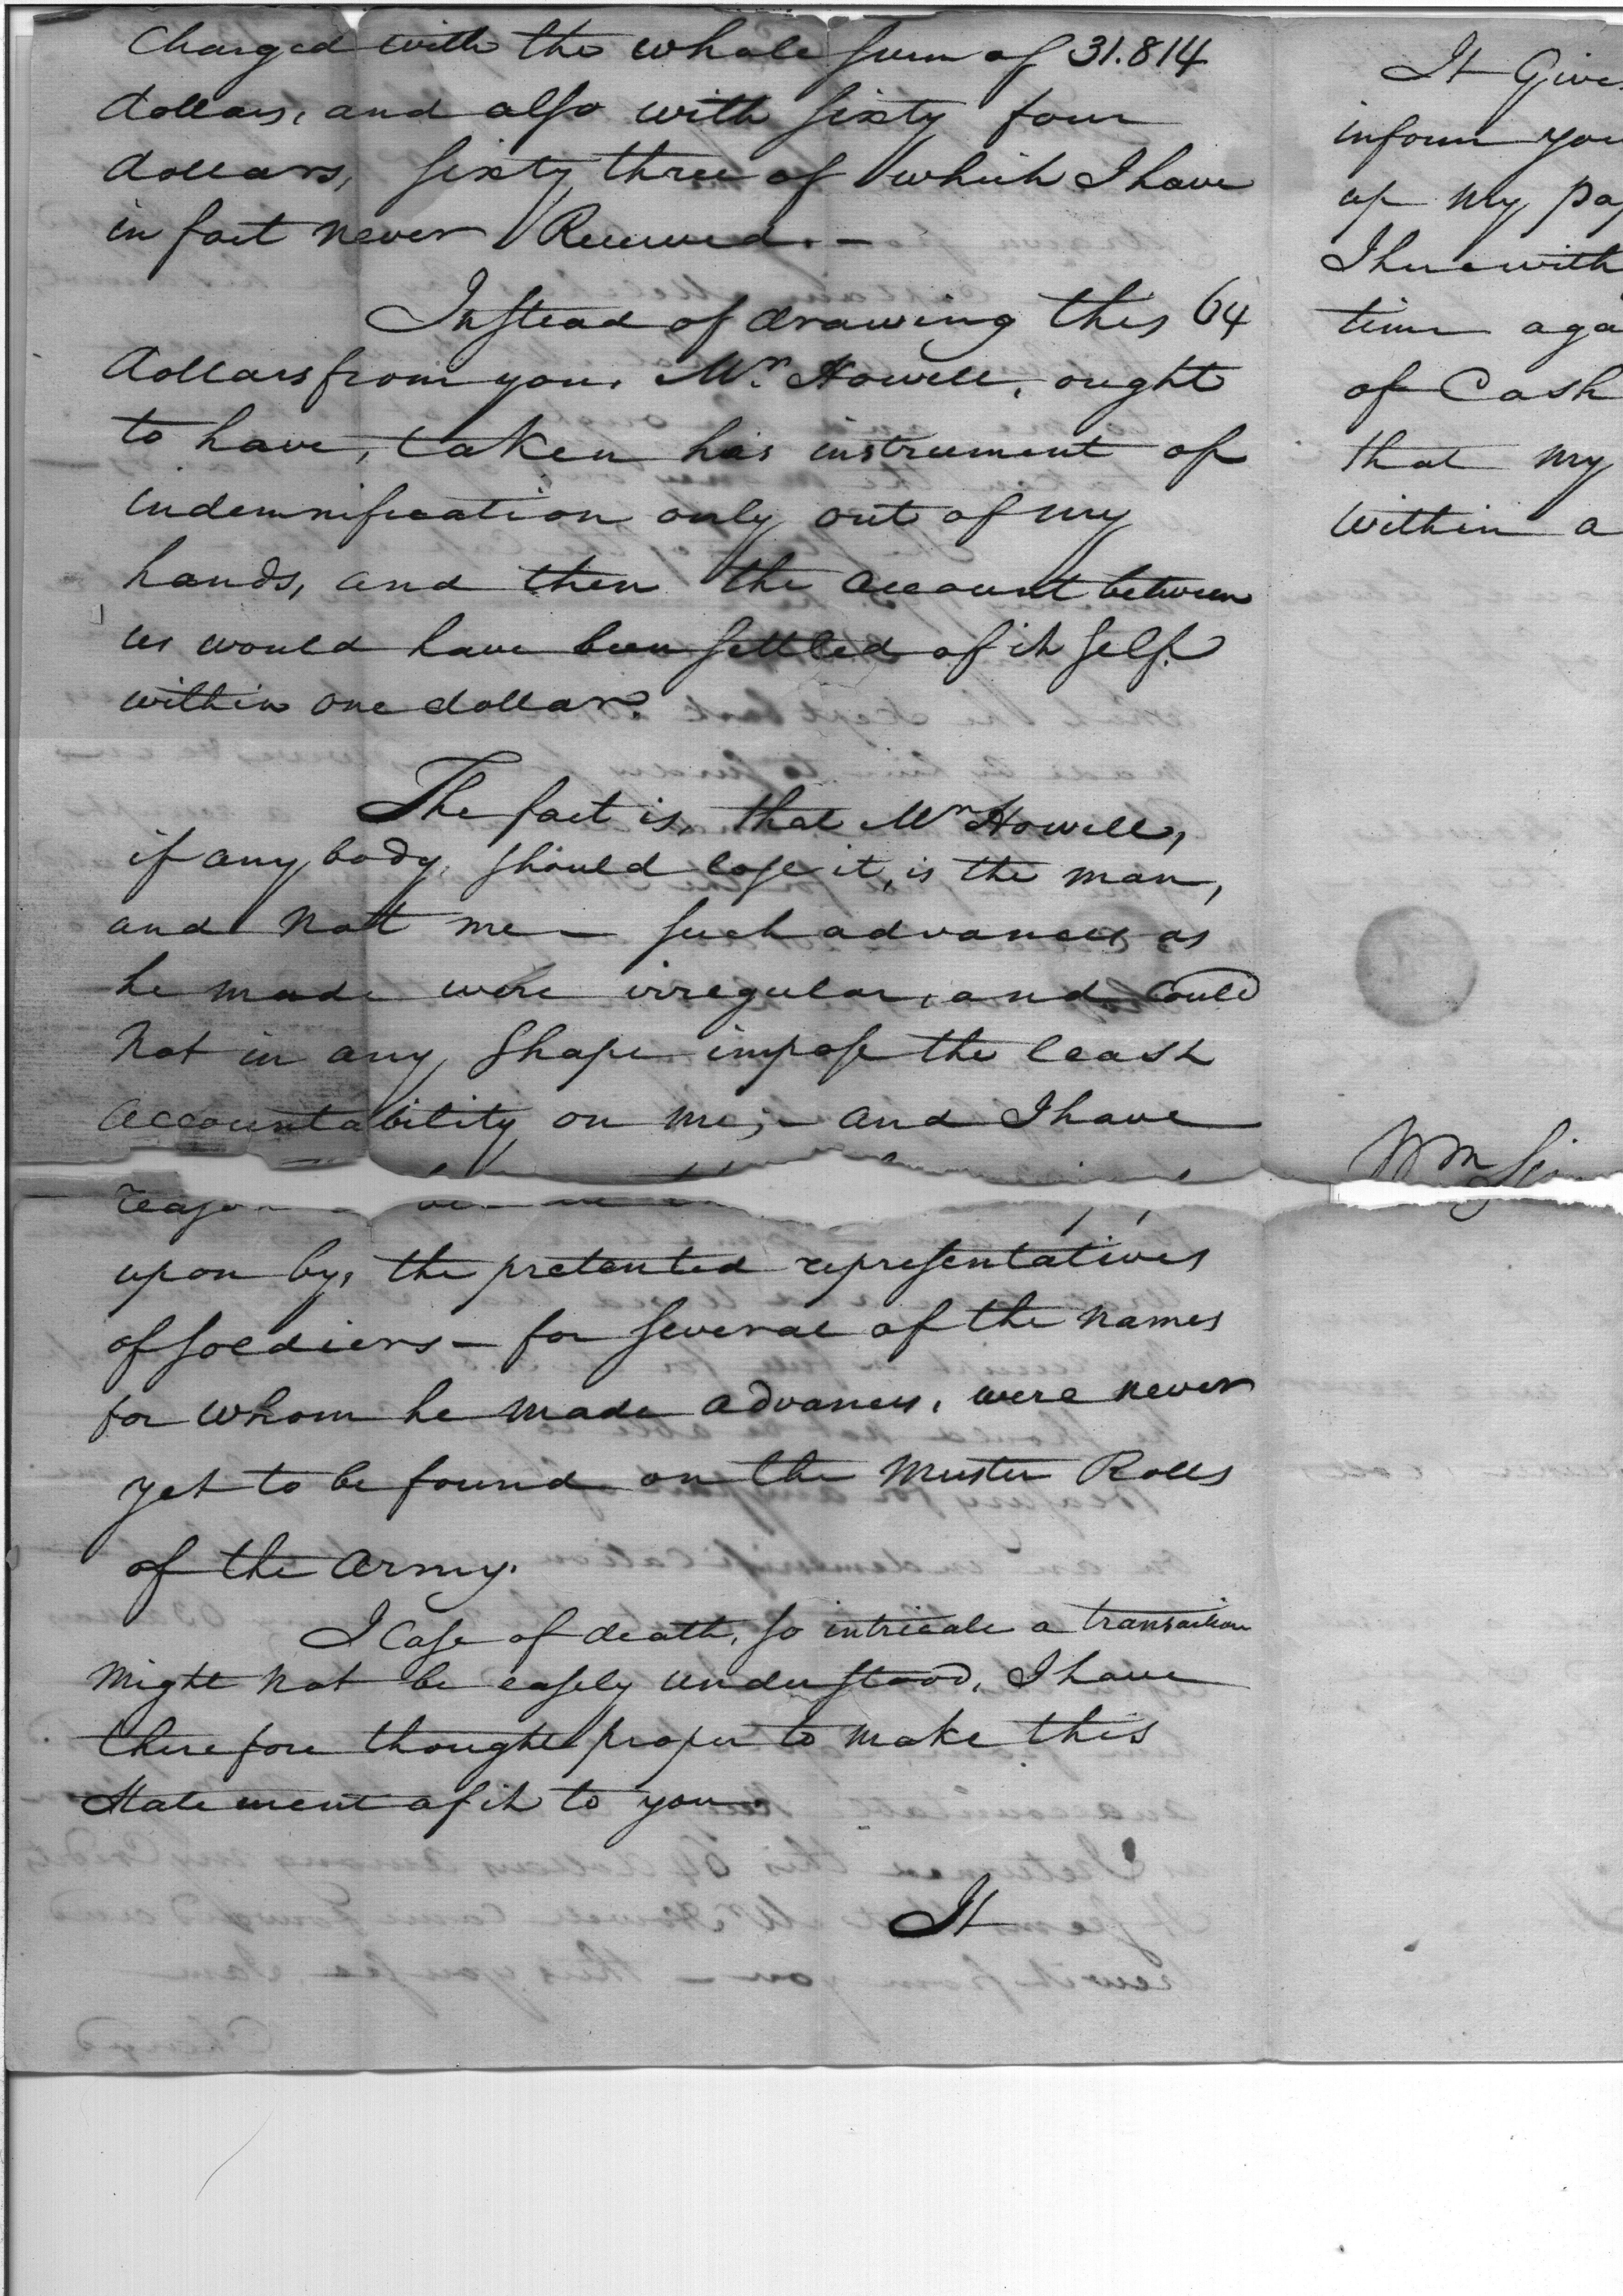 Charged with the whole sum of 31.814
dollars, and also with sixty four
dollars, sixty three of which I have
in fact never Received. -
Instead of drawing this 64
dollars from you, Mr. Howell, ought
to have, taken his instrument of
indemnification only out of my
hands, and then the account between
us would have been settled of it self
within one dollar.
The fact is, that Mr Howell,
if any body, should lose it, is the man,
and not me - such advances as
he made were irregular, and could
not in any shape impose the least
accountability on me; - and I have
reason
upon by, the pretented representatives
of soldiers - for several of the names
for whom he made advances, were never
yet to be found on the Muster Rolls
of the Army.
I Case of death, so intricate a transaction
might not be easely understood, I have
therefore thought proper to make this
Statement of it to you.
It
It Give
inform you
up my pa
I herewith
time aga
of Cash
that my
within a
Wm